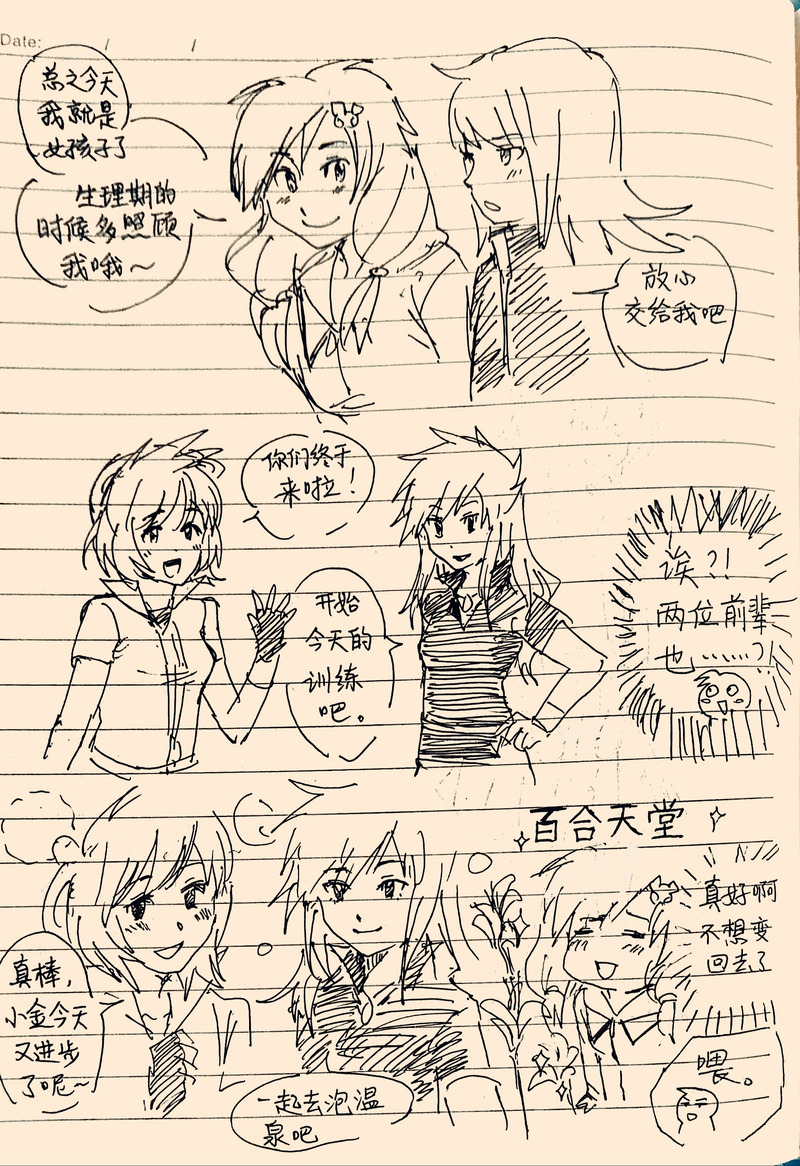 Date: / /
总之今天
我就是
女孩子了
生理期的
时候多照顾
我哦～
放小
交给我吧
你们终于
来啦！
开始
今天的
训练
吧。
诶？！
两位前辈
也……？！
百合天堂
真好啊
不想变
回去了
真棒，
小金今天
又进步
了呢～
一起去泡温
泉吧
喂。